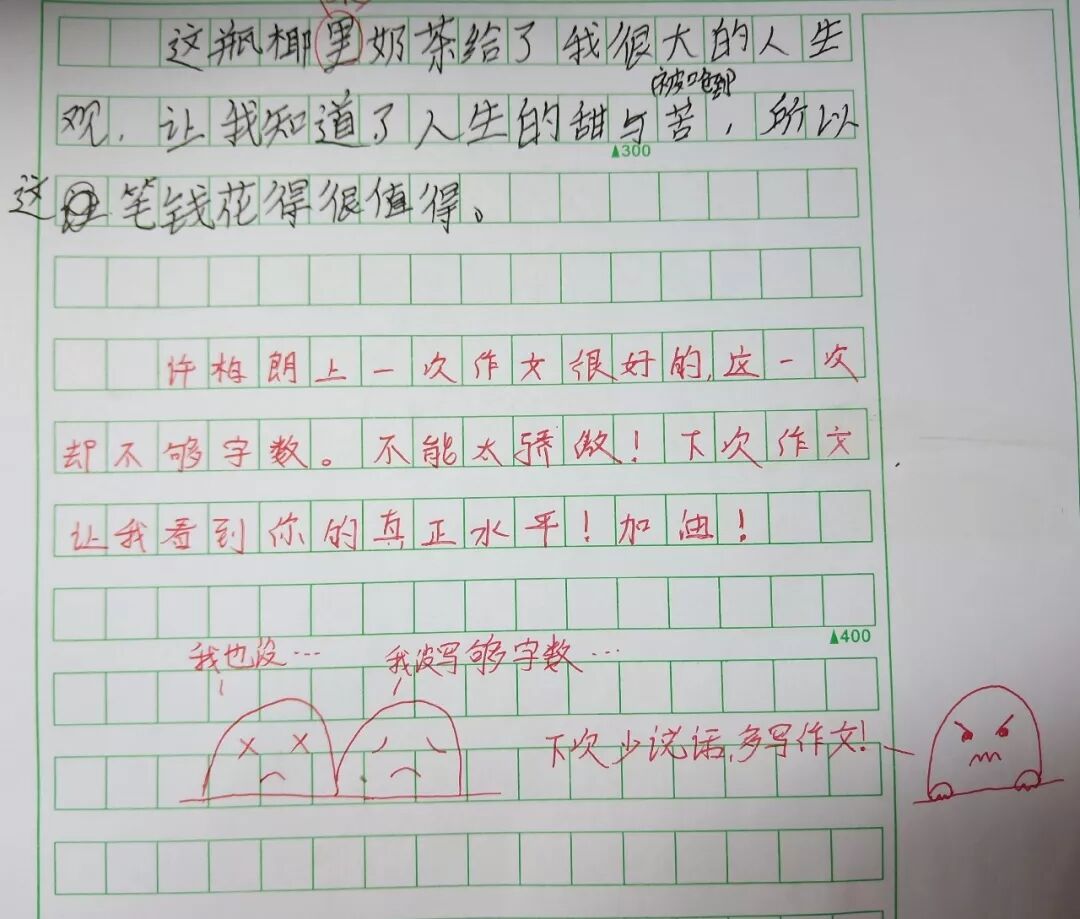 这瓶椰里奶茶给了我很大的人生
被呛到
观，让我知道了人生的甜与苦，所以
▲300
这笔钱花得很值得。
许梅朗上一次作文很好的，这一次
却不够字数。不能太骄傲！下次作文
让我看到你的真正水平！加油！
▲400
我也没…
我没写够字数…
下次少说话，多写作文！